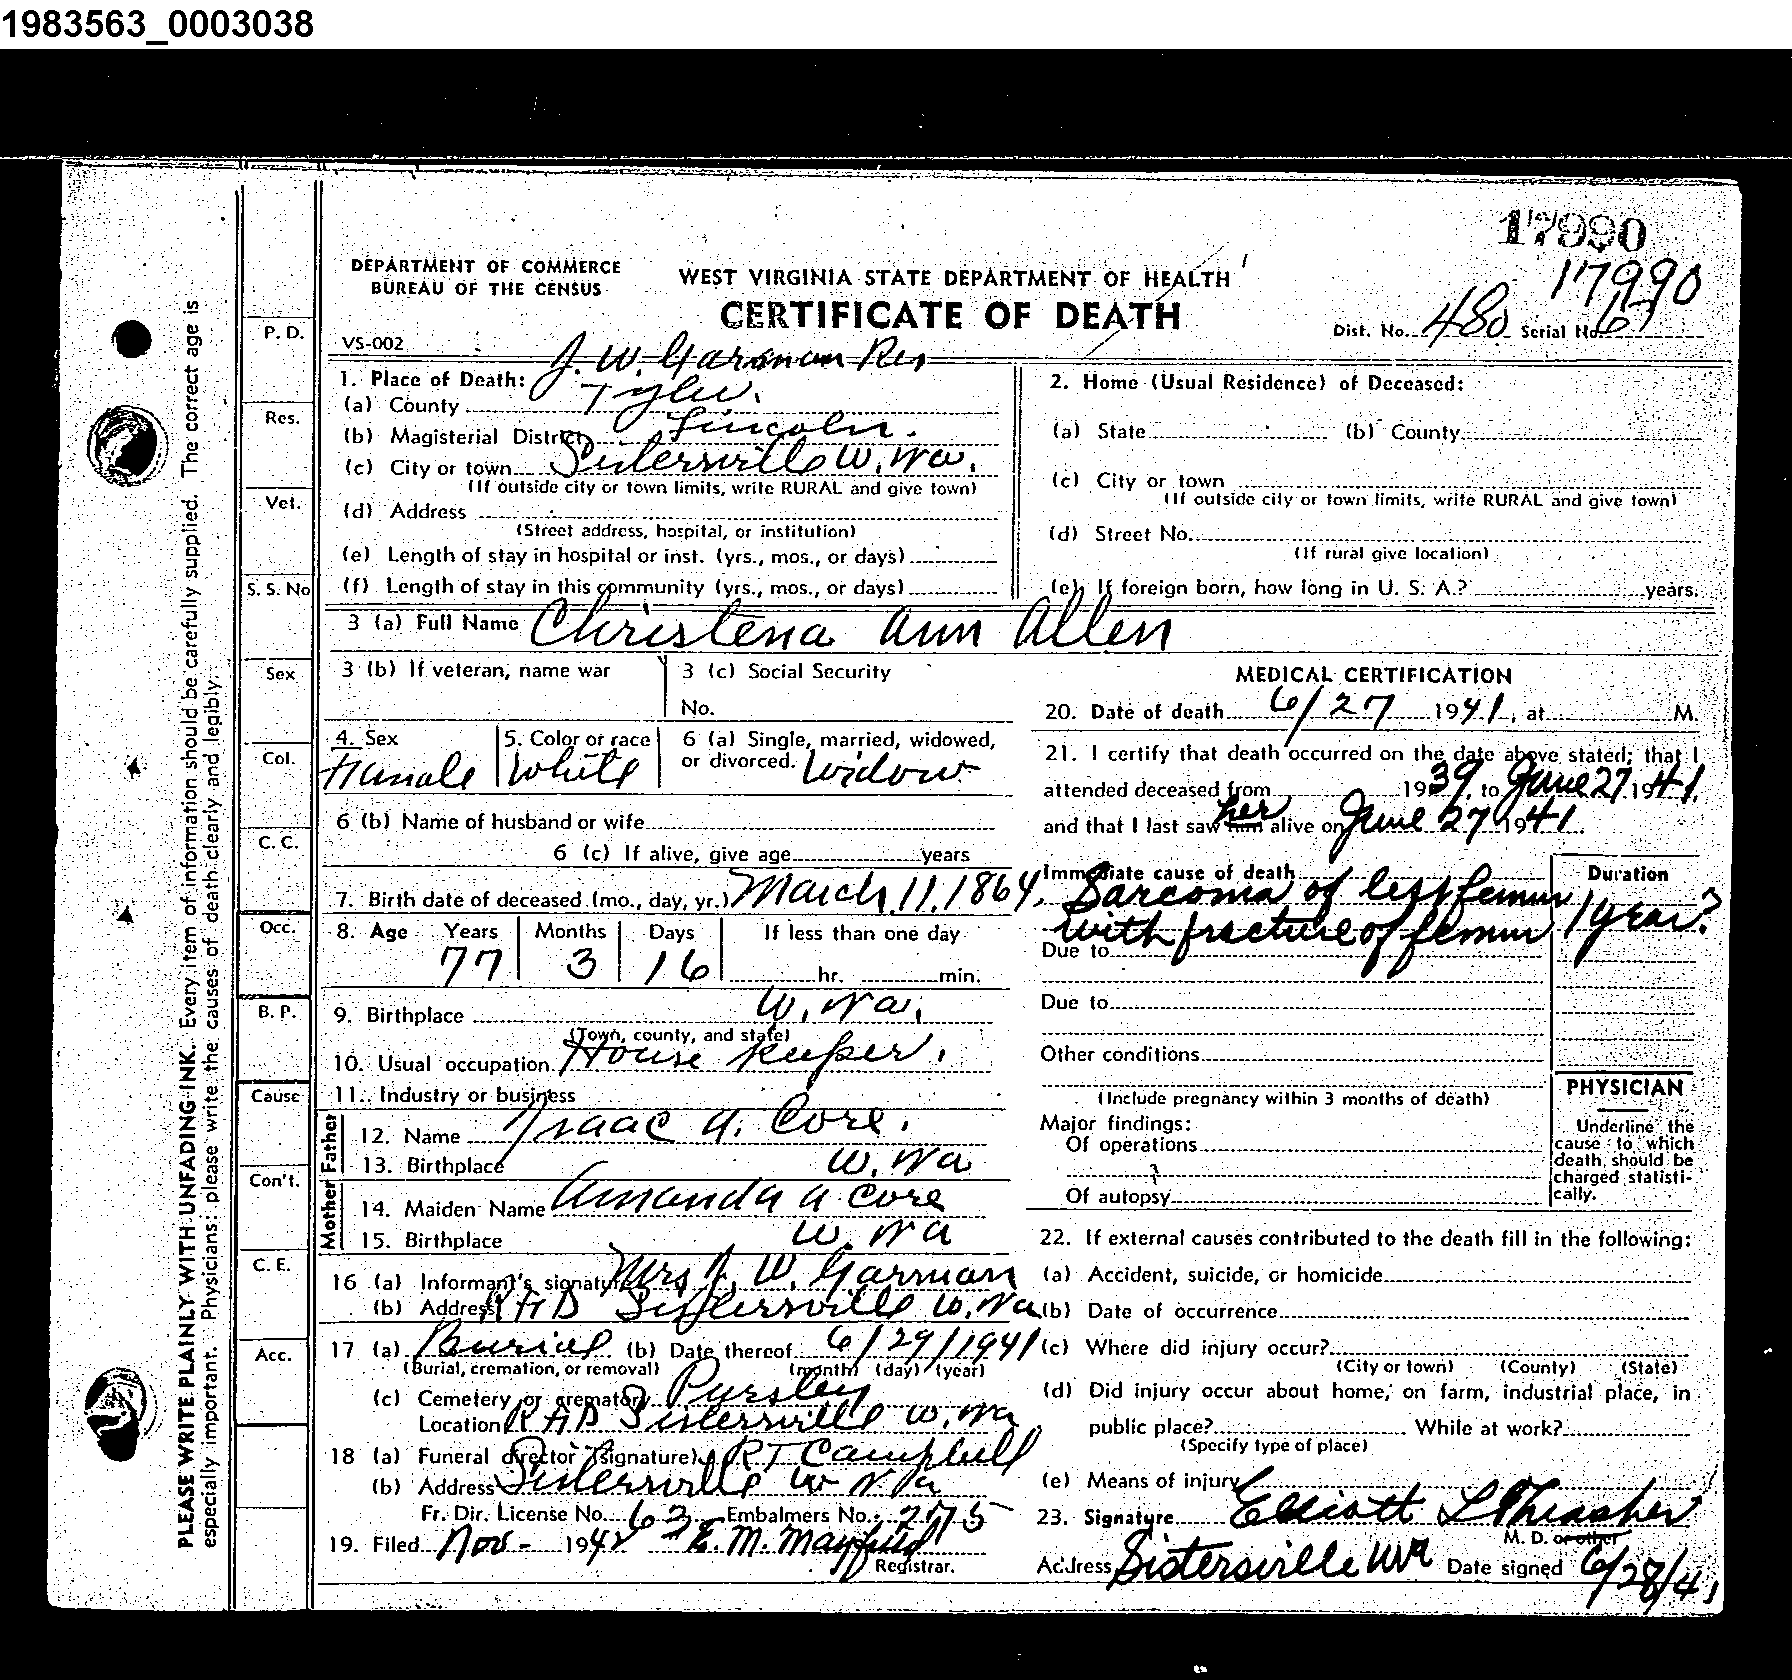 1983563_0003038
17990
17990
DEPARTMENT OF COMMERCE
BUREAU OF THE CENSUS
WEST VIRGINIA STATE DEPARTMENT OF HEALTH
CERTIFICATE OF DEATH
Dist. No. 480 Serial No. 67
VS-002
J. W. Garman Res
1. Place of Death:
(a) County Tyler.
(b) Magisterial District Lincoln.
(c) City or town Sistersville W. Va.
(If outside city or town limits, write RURAL and give town)
(d) Address
(Street address, hospital, or institution)
(e) Length of stay in hospital or inst. (yrs., mos., or days)
(f) Length of stay in this community (yrs., mos., or days)
2. Home (Usual Residence) of Deceased:
(a) State (b) County
(c) City or town
(If outside city or town limits, write RURAL and give town)
(d) Street No.
(If rural give location)
(e) If foreign born, how long in U. S. A.? years.
3 (a) Full Name Christena Ann Allen
3 (b) If veteran, name war
3 (c) Social Security
No.
4. Sex Female
5. Color or race White
6 (a) Single, married, widowed,
or divorced. Widow
6 (b) Name of husband or wife
6 (c) If alive, give age years
7. Birth date of deceased (mo., day, yr.) March 11, 1864.
8. Age Years Months Days If less than one day
77 3 16 hr. min.
9. Birthplace W. Va.
(Town, county, and state)
10. Usual occupation House keeper.
11. Industry or business
Father
12. Name Isaac A. Core.
13. Birthplace W. Va
Mother
14. Maiden Name Amanda A Core
15. Birthplace W. Va
16 (a) Informant's signature Mrs J. W. Garman
(b) Address RFD Sistersville W. Va
17 (a) Burial (b) Date thereof 6/29/1941
(Burial, cremation, or removal) (month) (day) (year)
(c) Cemetery or crematory Pursley
Location RFD Sistersville W. Va
18 (a) Funeral director (signature) RT Campbell
(b) Address Sistersville W Va
Fr. Dir. License No. 63 Embalmers No. 2775
19. Filed Nov - 1942 E. M. Mayfield
Registrar.
MEDICAL CERTIFICATION
20. Date of death 6/27 1941, at M.
21. I certify that death occurred on the date above stated; that I
attended deceased from 1939, to June 27 1941.
and that I last saw her him alive on June 27 1941.
Immediate cause of death Duration
Sarcoma of left femur 1 year?
with fracture of femur
Due to
Due to
Other conditions
(Include pregnancy within 3 months of death)
Major findings:
Of operations
Of autopsy
PHYSICIAN
Underline the
cause to which
death should be
charged statisti-
cally.
22. If external causes contributed to the death fill in the following:
(a) Accident, suicide, or homicide
(b) Date of occurrence
(c) Where did injury occur?
(City or town) (County) (State)
(d) Did injury occur about home, on farm, industrial place, in
public place? While at work?
(Specify type of place)
(e) Means of injury
23. Signature Elliott L Thrasher
M. D. or other
Address Sistersville W Va Date signed 6/28/41
P. D.
Res.
Vet.
S. S. No
Sex
Col.
C. C.
Occ.
B. P.
Cause
Con't.
C. E.
Acc.
PLEASE WRITE PLAINLY WITH UNFADING INK. Every item of information should be carefully supplied. The correct age is
especially important. Physicians: please write the causes of death clearly and legibly.